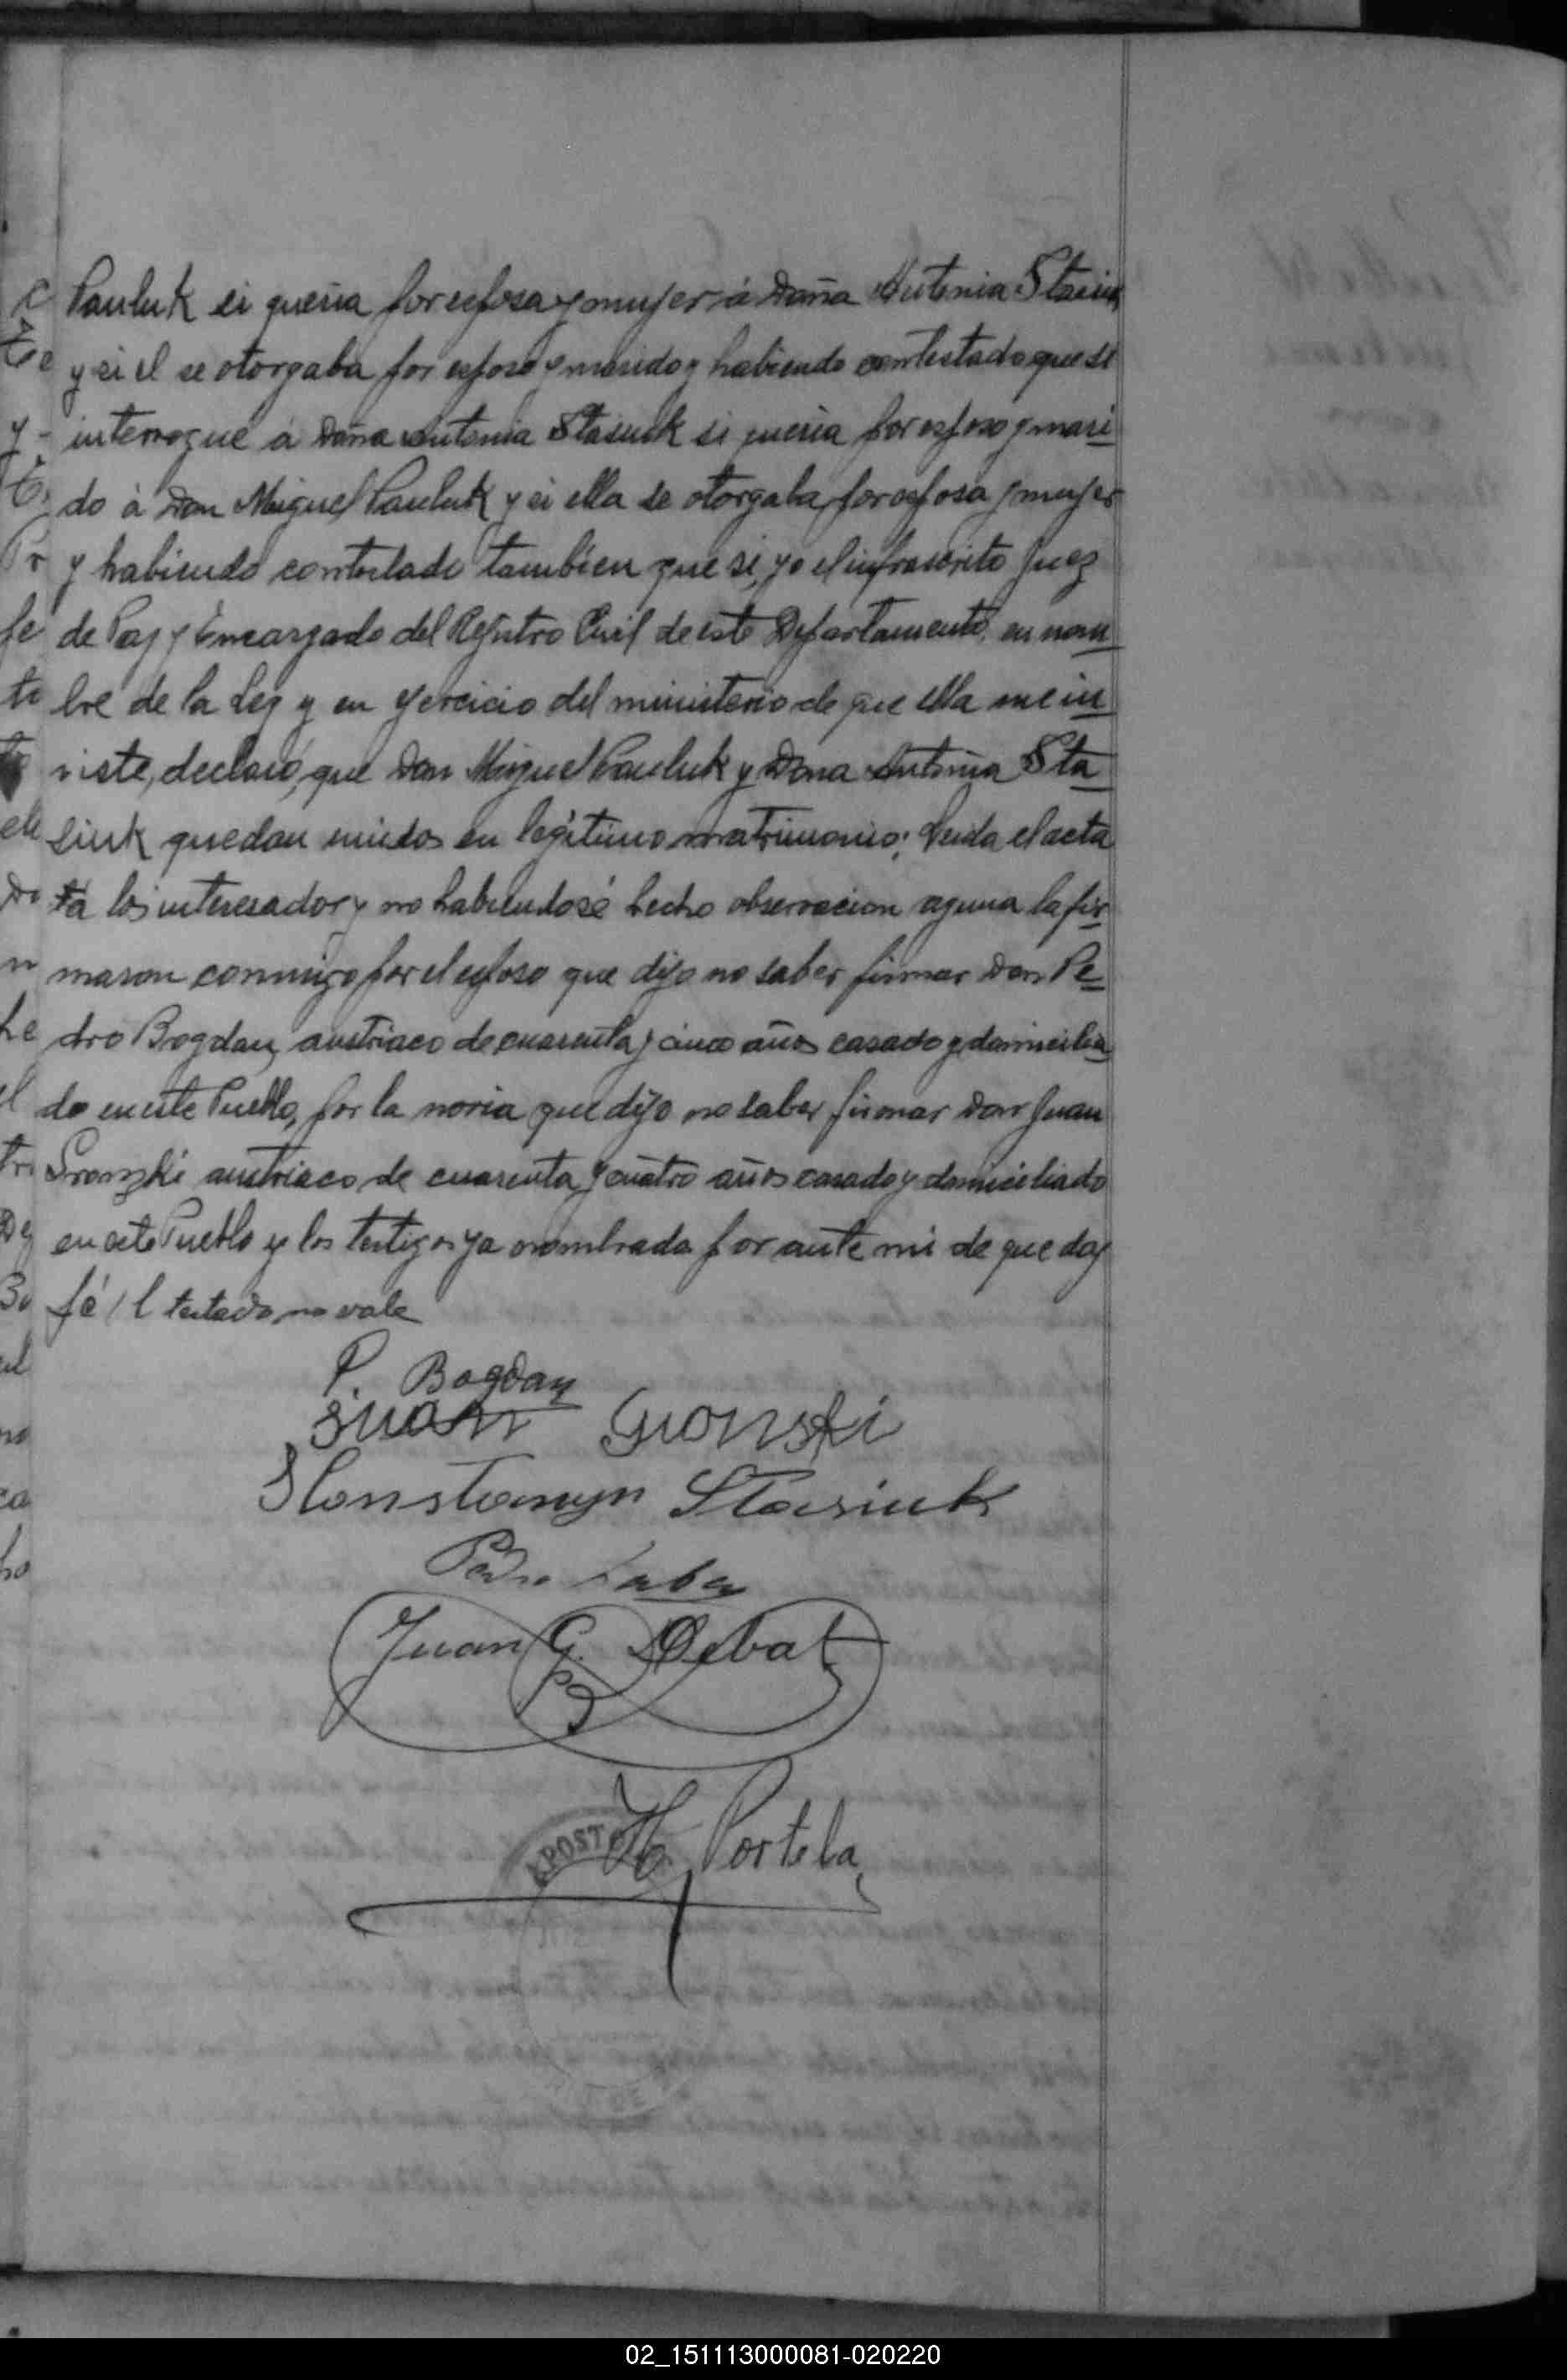 Pauluk si queria por esposa y mujer á Doña Antonia Stasiuk
y si el se otorgaba por esposo y marido y habiendo contestado que si
interrogué á Doña Antonia Stasiuk si queria por esposo y mari
do á Don Miguel Pauluk y si ella se otorgaba por esposa y mujer
y habiendo contestado tambien que si, yo el infrascrito Juez
de Paz y Encargado del Rejistro Civil de este Departamento, en nom
bre de la Ley y en ejercicio del ministerio de que ella me in
viste, declaró, que Don Miguel Pauluk y Dona Antonia Sta
siuk quedan unidos en legítimo matrimonio; Leida el acta
á los interesados y no habiendosé hecho observacion aguna la fir
maron conmigo por el esposo que dijo no saber firmar Don Pe
dro Bogdan, austriaco de cuarenta y cinco años casado y domicilia
do en este Pueblo, por la novia que dijo no saber firmar Don Juan
Gronski austriaco de cuarenta y cuatro años casado y domiciliado
en este Pueblo y los testigos ya nombrada por ante mi de que doy
fé / l testado no vale
P. Bogdan
Juan Gronski
Konstantyn Stasiuk
Pedro
Juan G. Debat
H. Portela
APOSTO
DE
02_151113000081-020220